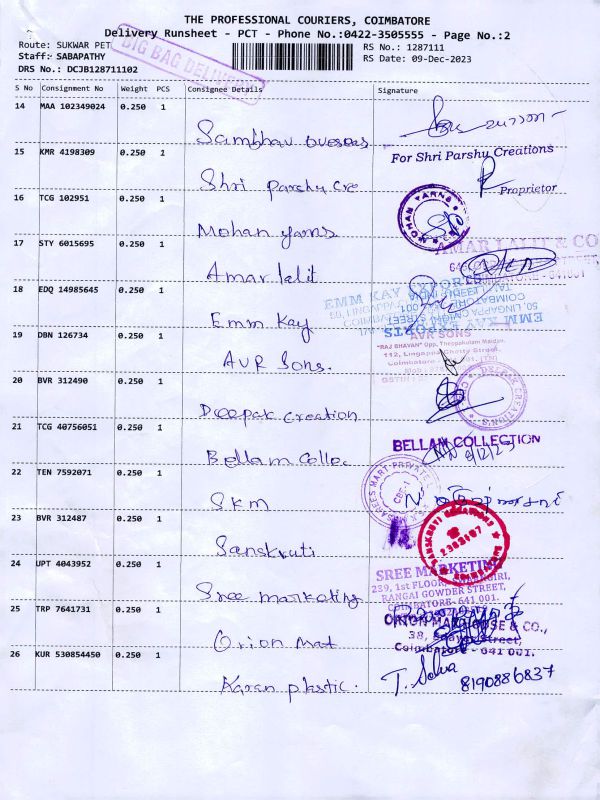 THE PROFESSIONAL COURIERS, COIMBATORE
Delivery Runsheet - PCT - Phone No.:0422-3505555 - Page No.:2
Route: SUKWAR PET
RS No.: 1287111
Staff: SABAPATHY
RS Date: 09-Dec-2023
DRS No.: DCJB128711102
BIG BAG DELIVERY
S No Consignment No Weight PCS Consignee Details Signature
14 MAA 102349024 0.250 1
Sambhav overseas
15 KMR 4198309 0.250 1
For Shri Parshy Creations
Shri parshy cre
Proprietor
16 TCG 102951 0.250 1
MOHAN YARNS
Mohan yarns
17 STY 6015695 0.250 1
AMAR LALIT & CO
Amar lalit
18 EDQ 14985645 0.250 1
EMM KAY EXPORTS
Emm Kay
50, LINGAPPA CHETTY STREET
COIMBATORE - 641 001.
19 DBN 126734 0.250 1
AVR SONS
"RAJ BHAVAN" Opp, Theppakulam Maidan,
112, Lingappa Chetty Street,
AVR Sons.
20 BVR 312490 0.250 1
DEEPAK CREATIONS
Deepak creation
21 TCG 40756051 0.250 1
BELLAM COLLECTION
9/12/23
Bellam Collec
22 TEN 7592071 0.250 1
SKM
23 BVR 312487 0.250 1
SANSKRUTI CREATIONS
2363007
Sanskruti
24 UPT 4043952 0.250 1
SREE MARKETING
239, 1st FLOOR,
RANGAI GOWDER STREET,
COIMBATORE- 641 001.
Sree marketing
25 TRP 7641731 0.250 1
ORION MART HOUSE & CO.,
38,
Street,
Coimbatore - 641 001.
Orion Mart
26 KUR 530854450 0.250 1
T. Selva
8190886837
Karan plastic.